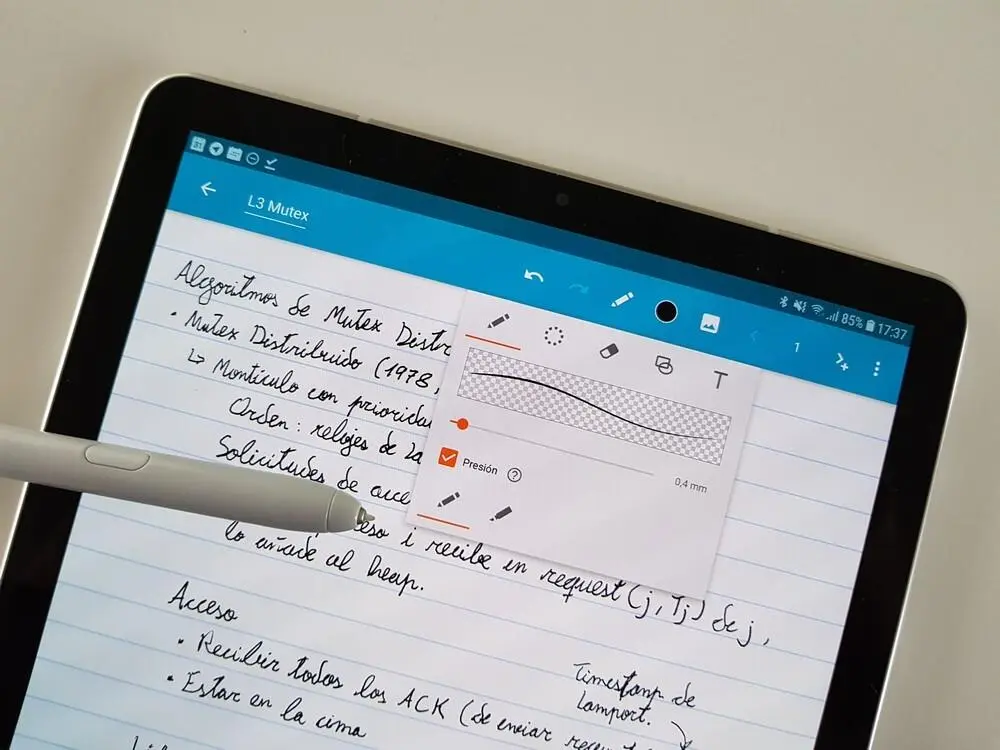 31
85% 17:37
L3 Mutex
1
T
Algoritmos de Mutex Distr
• Mutex Distribuido (1978,
↳ Montículo con prioridad
Orden: relojes de La
Solicitudes de acce
0,4 mm
Presión ?
eso i recibe un request (j, Tj) de j,
lo añade al heap.
Acceso
• Recibir todos los ACK (de enviar
• Estar en la cima
Timestamp de
Lamport.